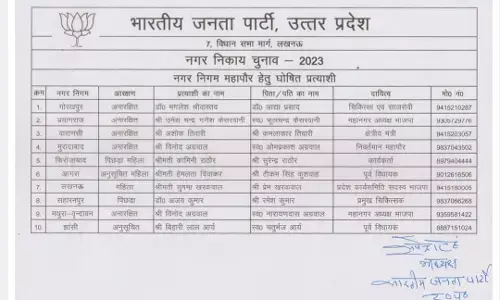 भारतीय जनता पार्टी, उत्तर प्रदेश
7, विधान सभा मार्ग, लखनऊ
नगर निकाय चुनाव - 2023
नगर निगम महापौर हेतु घोषित प्रत्याशी
क्रम नगर निगम आरक्षण प्रत्याशी का नाम पिता/पति का नाम दायित्व मो० नं०
1. गोरखपुर अनारक्षित डॉ० मंगलेश श्रीवास्तव डॉ० आद्या प्रसाद चिकित्सा एवं साजसेवी 9415210287
2. प्रयागराज अनारक्षित श्री उमेश चन्द्र गणेश केसरवानी स्व० सुलचन्द्र केसरवानी महानगर अध्यक्ष भाजपा 9305729776
3. वाराणसी अनारक्षित श्री अशोक तिवारी श्री कमलाकर तिवारी क्षेत्रीय मंत्री 9415203057
4. मुरादाबाद अनारक्षित श्री विनोद अग्रवाल स्व० ओमप्रकाश अग्रवाल निवर्तमान महापौर 9837043502
5. फिरोजाबाद पिछड़ा महिला श्रीमती कामिनी राठौर श्री सुरेन्द्र राठौर कार्यकर्ता 8979404444
6. आगरा अनुसूचित महिला श्रीमती हेमलता दिवाकर श्री टीकम सिंह कुशवाह पूर्व विधायक 9012616506
7. लखनऊ महिला श्रीमती सुषमा खरकवाल श्री प्रेम खरकवाल प्रदेश कार्यसमिति सदस्य भाजपा 9416180005
8. सहारनपुर पिछड़ा डॉ० अजय कुमार श्री रमेश कुमार प्रमुख चिकित्सक 9837066268
9. मथुरा-वृन्दावन अनारक्षित श्री विनोद अग्रवाल स्व० नारायणदास अग्रवाल महानगर अध्यक्ष भाजपा 9359581422
10. झांसी अनुसूचित श्री बिहारी लाल आर्य श्री चतुर्भुज आर्य पूर्व विधायक 8887151024
अध्यक्ष
भारतीय जनता पार्टी
उ०प्र०